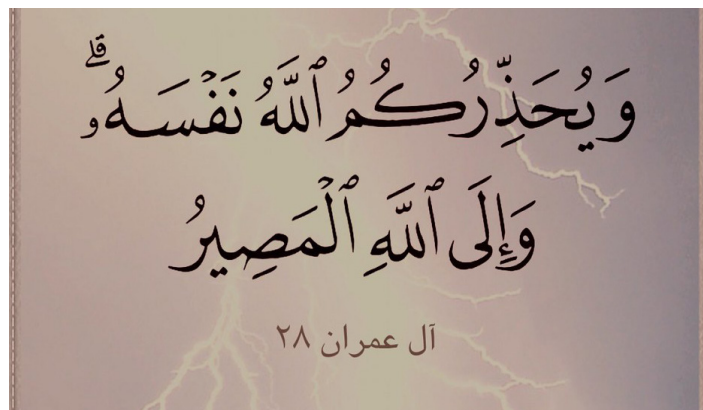 وَيُحَذِّرُكُمُ ٱللَّهُ نَفۡسَهُۥۗ
وَإِلَى ٱللَّهِ ٱلۡمَصِيرُ
آل عمران ٢٨